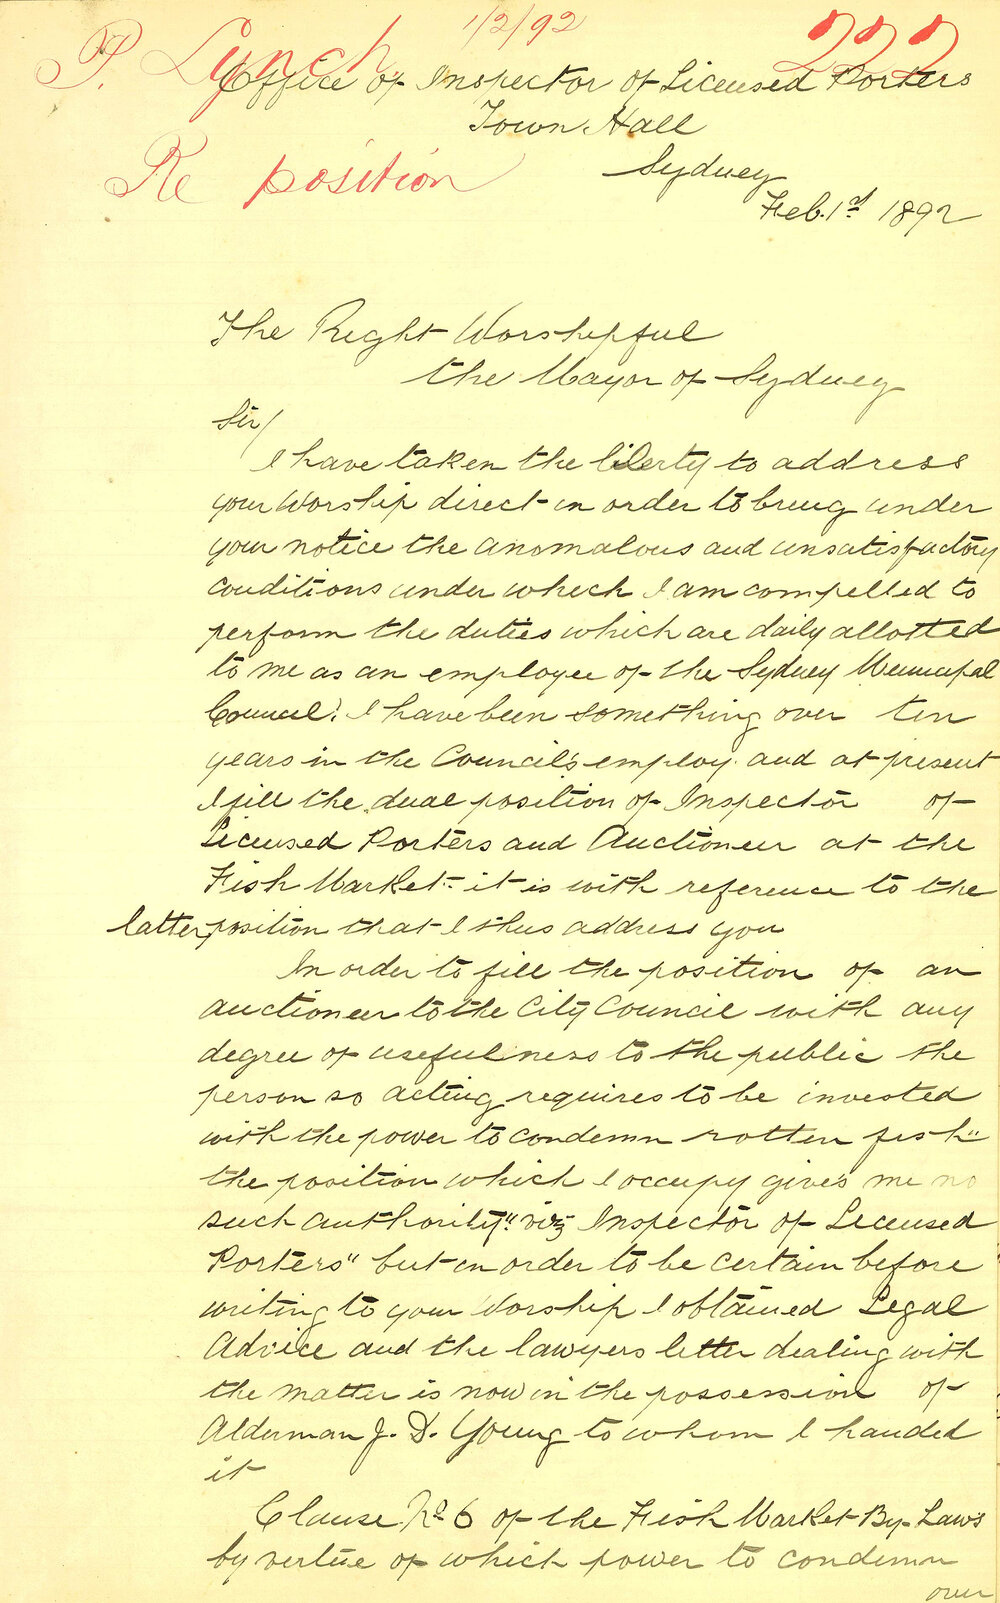 1/2/92
222
P. Lynch
Re position
Office of Inspector of Licensed Porters
Town Hall
Sydney
Feb. 1st 1892
The Right Worshipful
the Mayor of Sydney
Sir/
I have taken the liberty to address
your Worship direct in order to bring under
your notice the anomalous and unsatisfactory
conditions under which I am compelled to
perform the duties which are daily allotted
to me as an employee of the Sydney Municipal
Council. I have been something over ten
years in the Council's employ and at present
I fill the dual position of Inspector of
Licensed Porters and Auctioneer at the
Fish Market it is with reference to the
latter position that I thus address you
In order to fill the position of an
auctioneer to the City Council with any
degree of usefulness to the public the
person so acting requires to be invested
with the power to condemn rotten fish"
the position which I occupy gives me no
such authority" viz Inspector of Licensed
Porters" but in order to be certain before
writing to your Worship I obtained Legal
Advice and the lawyers letter dealing with
the matter is now in the possession of
Alderman J. D. Young to whom I handed
it
Clause No 6 of the Fish Market By-Laws
by vertue of which power to condemn
over